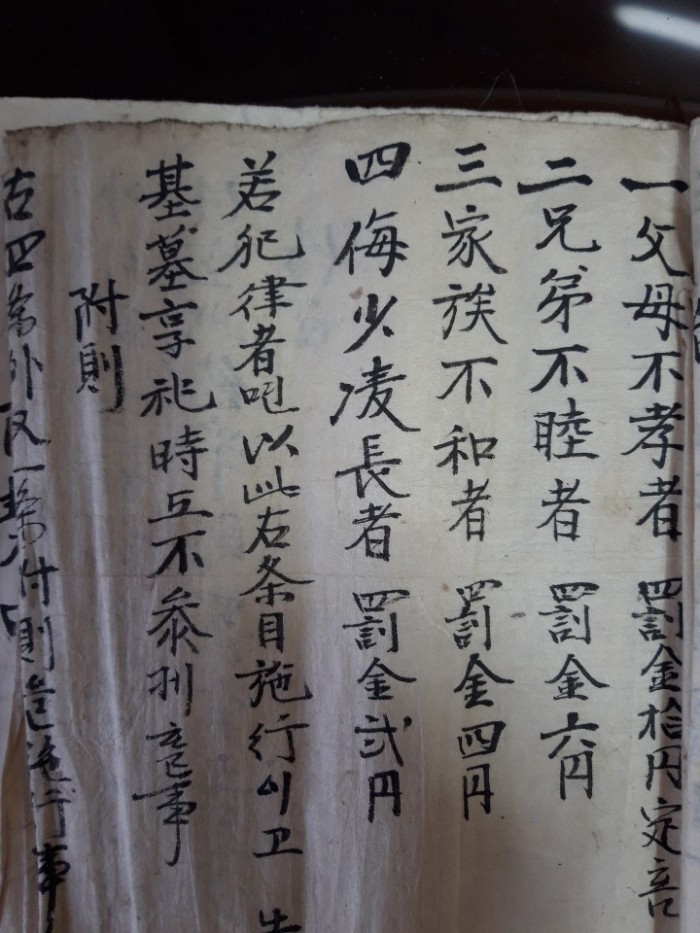 一父母不孝者 罰金拾円定言
二兄弟不睦者 罰金六円
三家族不和者 罰金四円
四侮少凌長者 罰金弐円
若犯律者 以此右条目施行이고
基墓享祀時 不參 事
附則
右四 外 一 付則 施行事